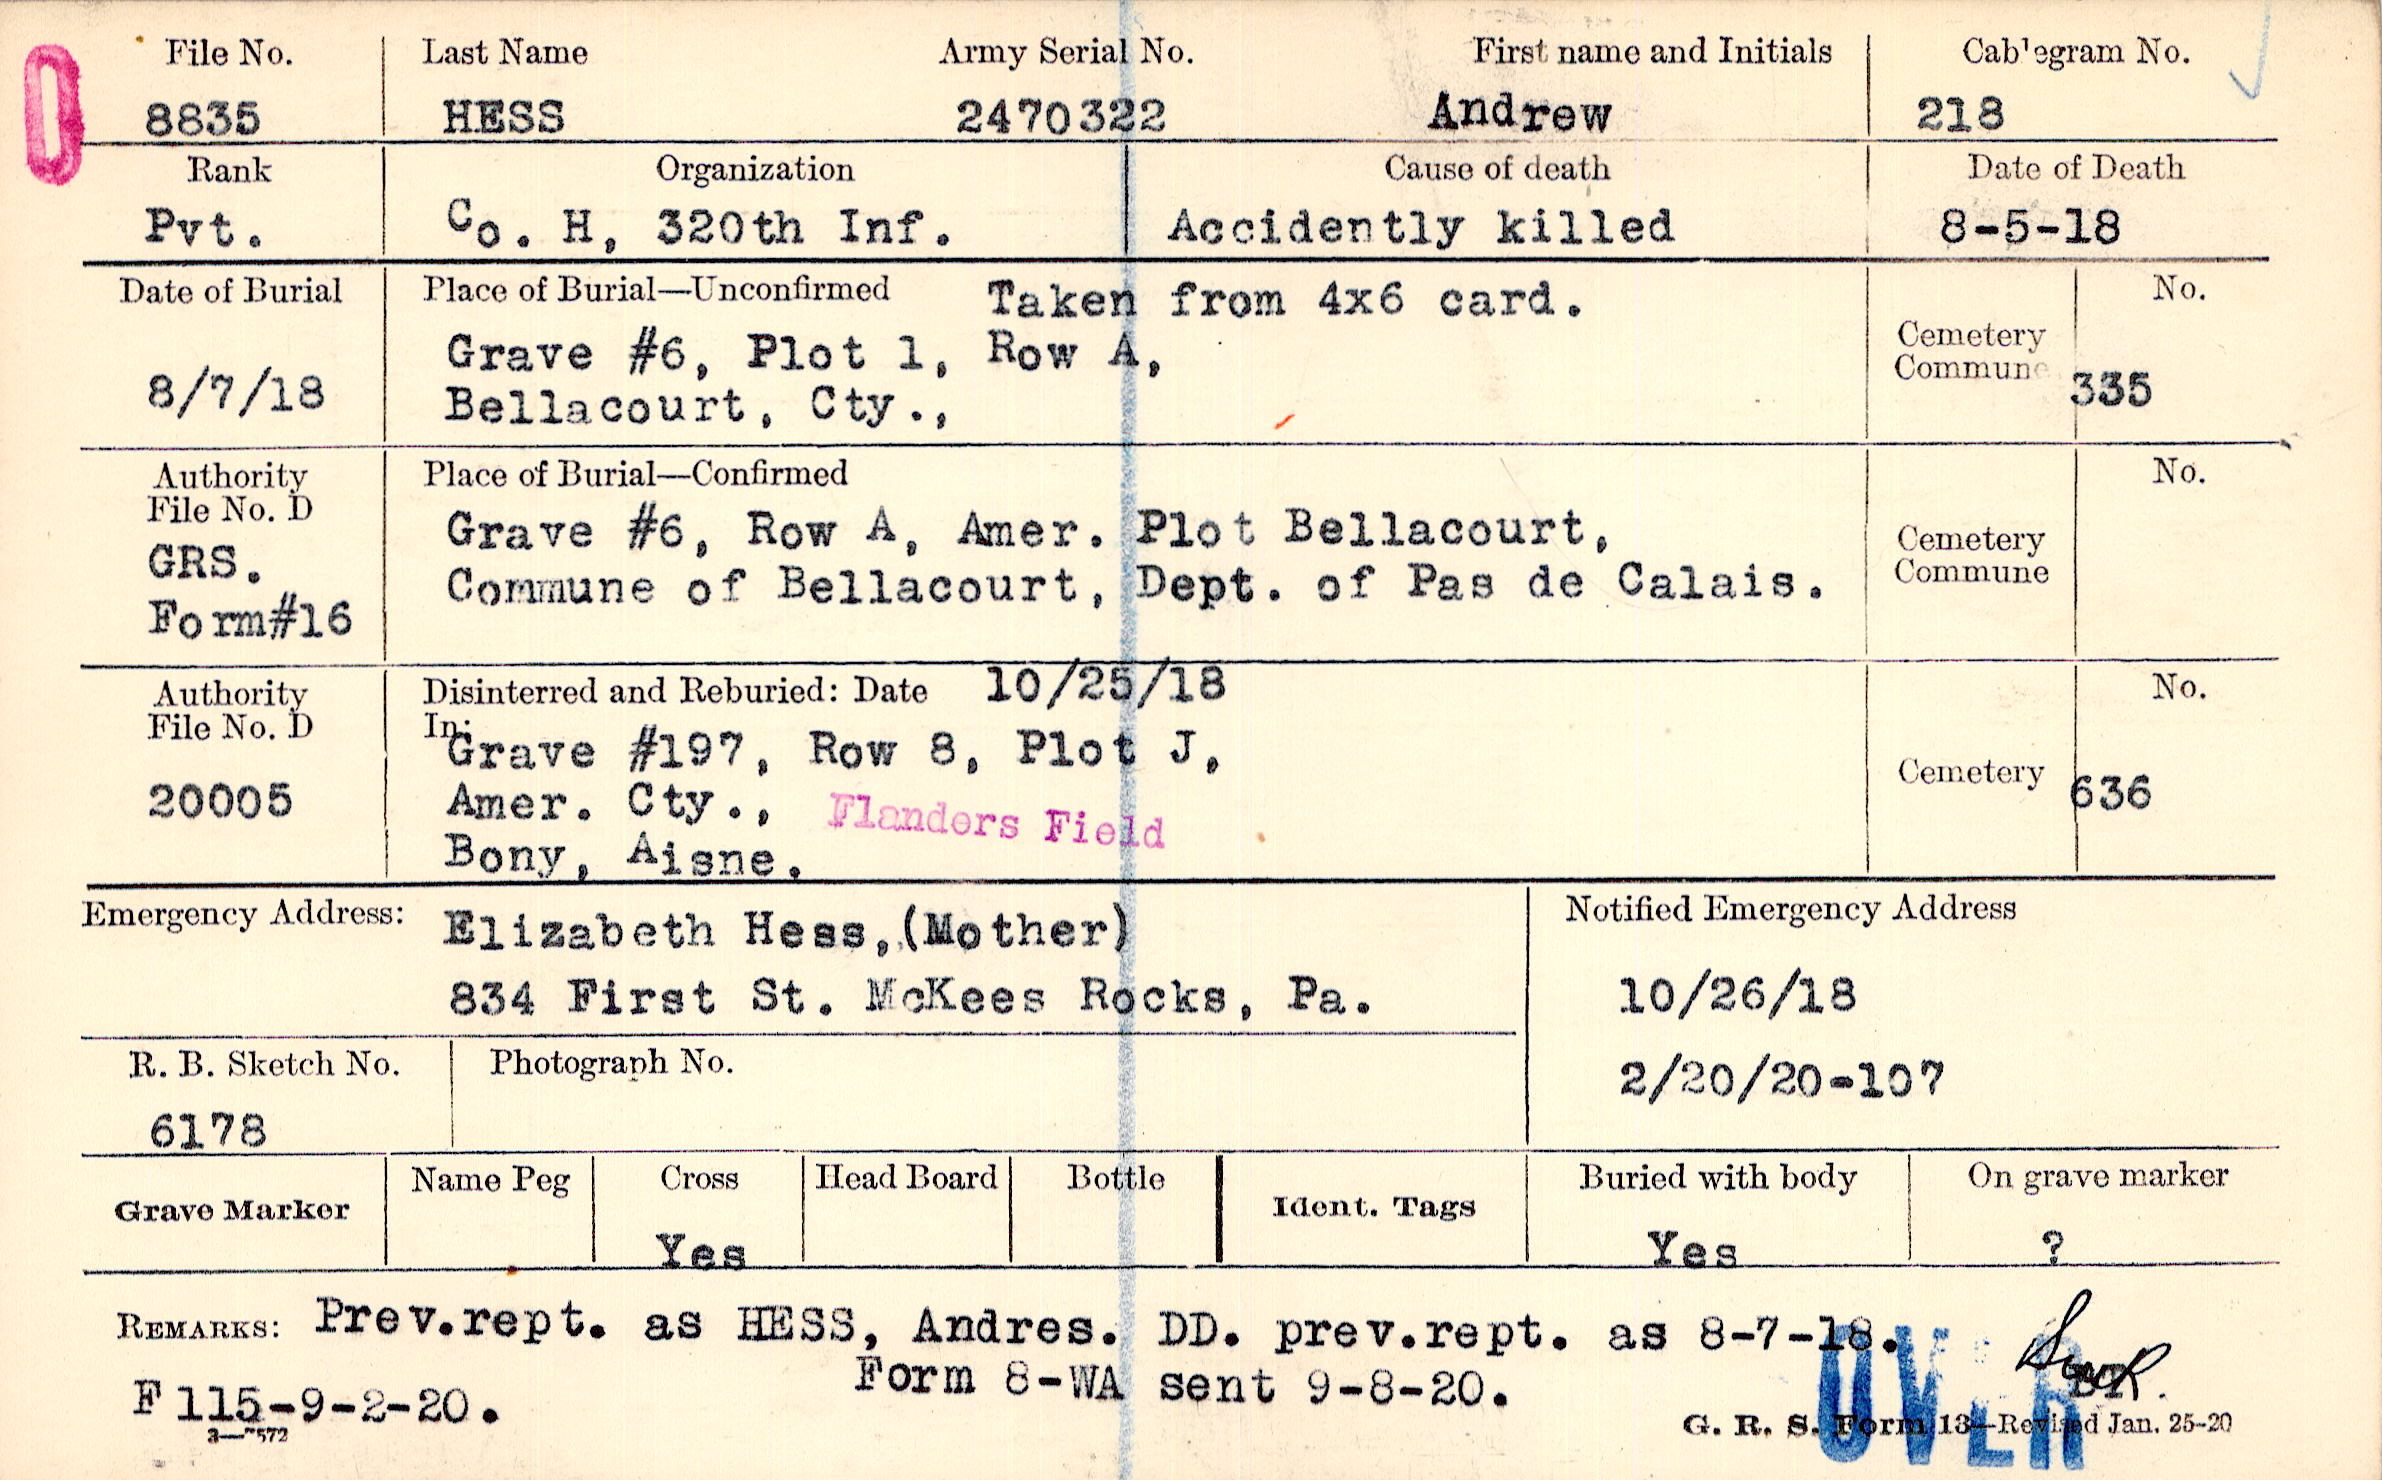 File No. Last Name Army Serial No. First name and Initials Cablegram No.
8835 HESS 2470322 Andrew 218
Rank Organization Cause of death Date of Death
Pvt. Co. H, 320th Inf. Accidently killed 8-5-18
Date of Burial Place of Burial—Unconfirmed Taken from 4x6 card. No.
Grave #6, Plot 1, Row A, Cemetery
Commune
8/7/18 Bellacourt, Cty., 335
Authority Place of Burial—Confirmed No.
File No. D
Grave #6, Row A, Amer. Plot Bellacourt, Cemetery
GRS. Commune of Bellacourt, Dept. of Pas de Calais. Commune
Form#16
Authority Disinterred and Reburied: Date 10/25/18 No.
File No. D In:
Grave #197, Row 8, Plot J, Cemetery
20005 Amer. Cty., Flanders Field 636
Bony, Aisne.
Emergency Address: Elizabeth Hess,(Mother) Notified Emergency Address
834 First St. McKees Rocks, Pa. 10/26/18
R. B. Sketch No. Photograph No. 2/20/20-107
6178
Grave Marker Name Peg Cross Head Board Bottle Ident. Tags Buried with body On grave marker
Yes Yes ?
REMARKS: Prev.rept. as HESS, Andres. DD. prev.rept. as 8-7-18.
Form 8-WA sent 9-8-20.
F 115-9-2-20.
3—7572 G. R. S. Form 13—Revised Jan. 25-20
OVER